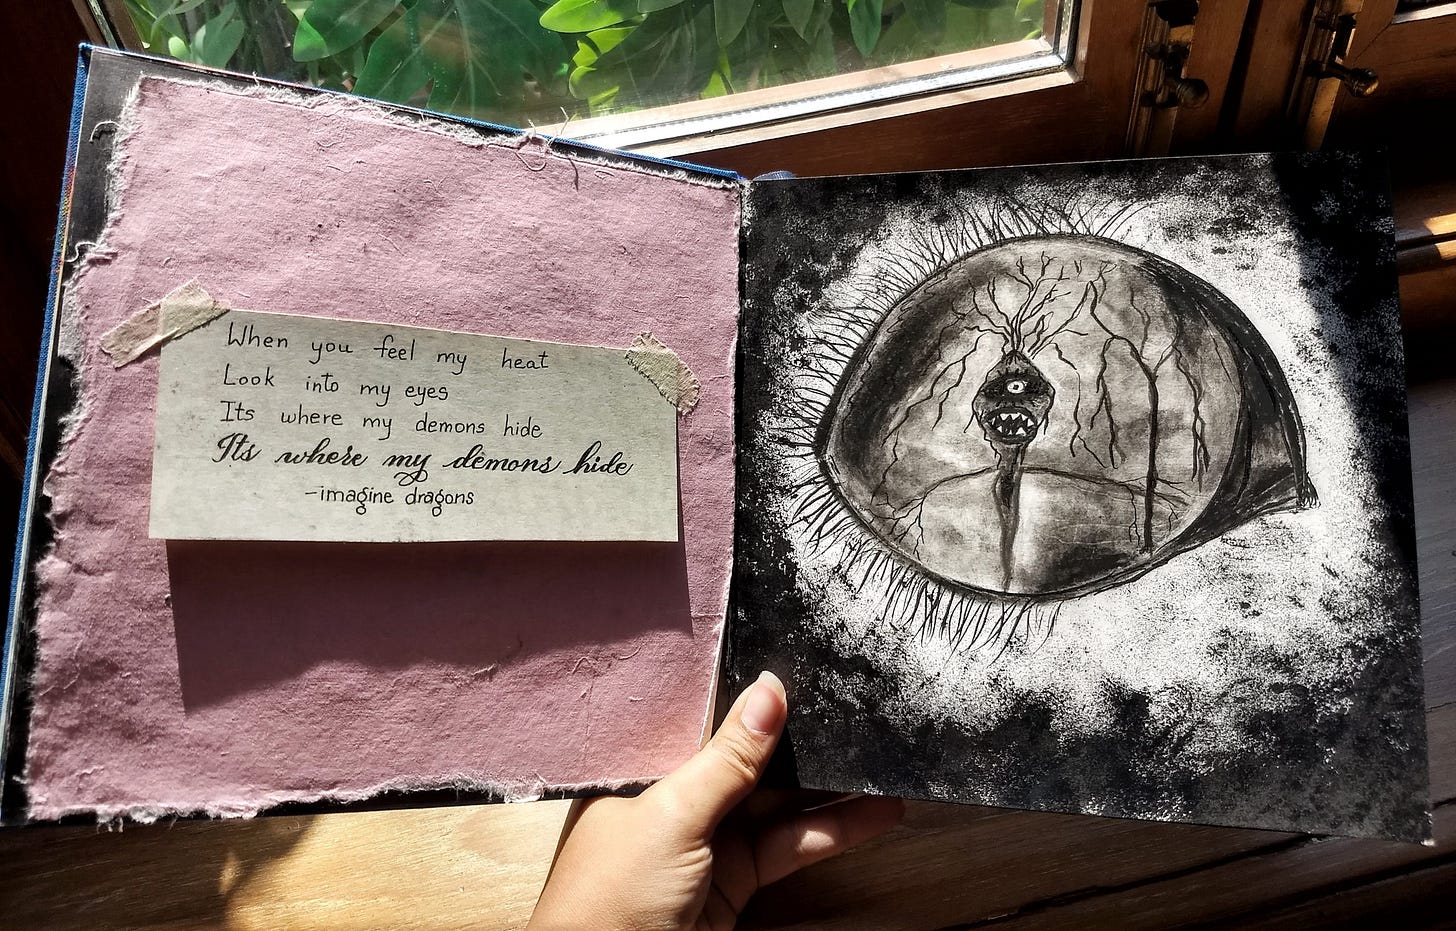 When you feel my heat
Look into my eyes
Its where my demons hide
Its where my demons hide
-imagine dragons